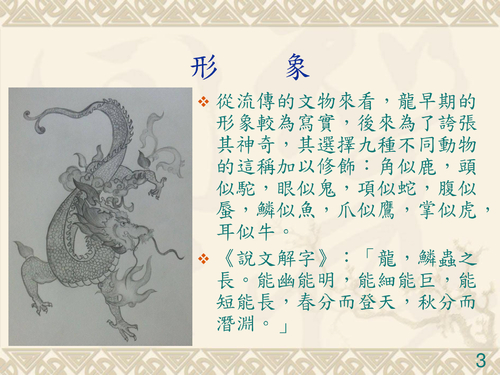 形 象
從流傳的文物來看，龍早期的
形象較為寫實，後來為了誇張
其神奇，其選擇九種不同動物
的這稱加以修飾：角似鹿，頭
似駝，眼似鬼，項似蛇，腹似
蜃，鱗似魚，爪似鷹，掌似虎，
耳似牛。
《說文解字》：「龍，鱗蟲之
長。能幽能明，能細能巨，能
短能長，春分而登天，秋分而
潛淵。」
3